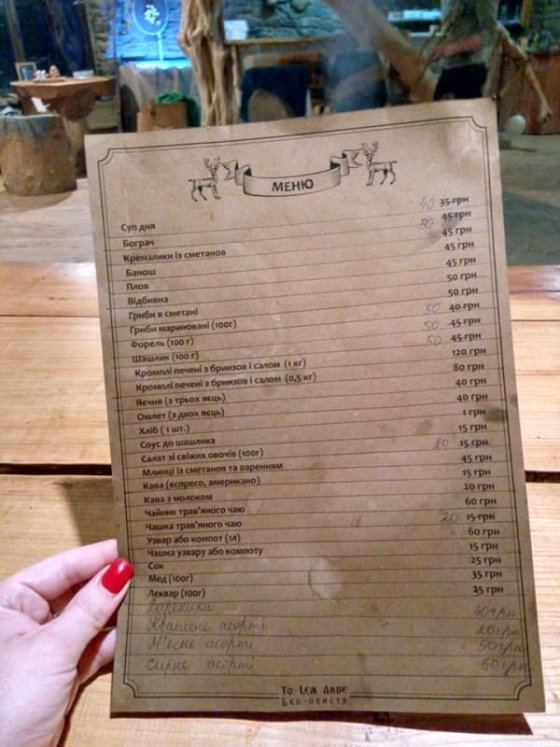 МЕНЮ
Суп дня 40 35 грн
Бограч 50 45 грн
Кремзлики із сметанов 45 грн
Банош 45 грн
Плов 45 грн
Відбивна 50 грн
Гриби в сметані 50 грн
Гриби мариновані (100г) 50 40 грн
Форель (100 г) 50 45 грн
Шашлик (100 г) 50 45 грн
Кромплі печені з бринзов і салом (1 кг) 120 грн
Кромплі печені з бринзов і салом (0,5 кг) 80 грн
Яєчня (з трьох яєць) 40 грн
Омлет (з двох яєць) 40 грн
Хліб ( 1 шт.) 1 грн
Соус до шашлика 15 грн
Салат зі свіжих овочів (100г) 20 15 грн
Млинці із сметанов та варенням 45 грн
Кава (еспресо, американо) 15 грн
Кава з молоком 20 грн
Чайник трав'яного чаю 60 грн
Чашка трав'яного чаю 20 15 грн
Узвар або компот (1л) 60 грн
Чашка узвару або компоту 15 грн
Сок 25 грн
Мед (100г) 35 грн
Леквар (100г) 25 грн
Вареники 40грн
Квашене асорті 20грн
М'ясне асорті 50грн
Сирне асорті 50грн
То Лем Анде
Еко-обисття